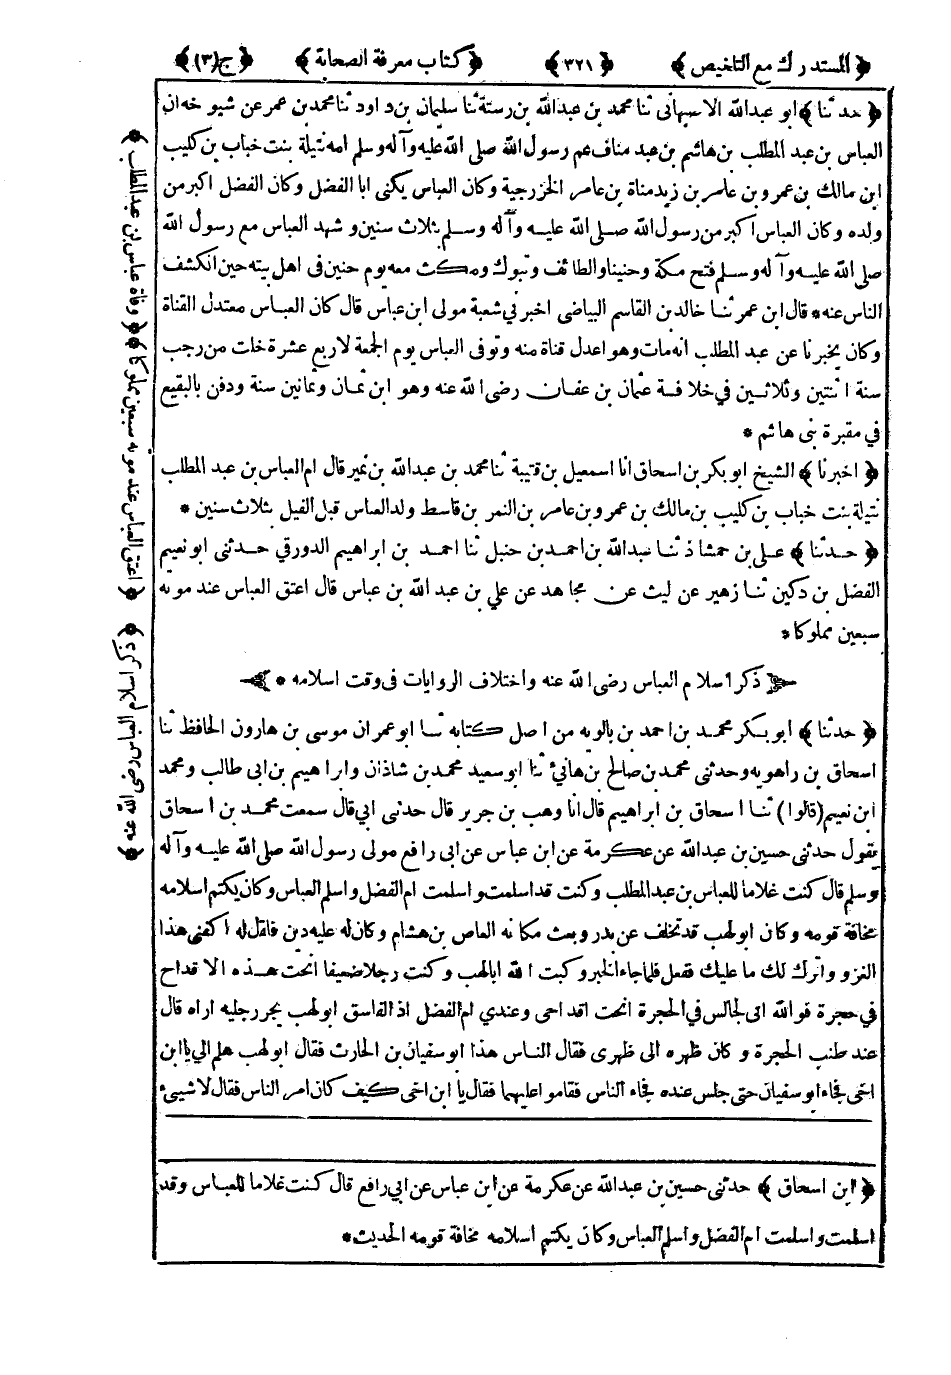 ﴿ المستدرك مع التلخيص ﴾ ﴿ ٣٢١ ﴾ ﴿ كتاب معرفة الصحابة ﴾ ﴿ ج(٣) ﴾
﴿ حدثنا ﴾ ابو عبدالله الاصبهانى ثنا محمد بن عبدالله بن رستة ثنا سليمان بن داود ثنا محمد بن عمر عن شيوخه ان
العباس بن عبد المطلب بن هاشم بن عبد مناف عم رسول الله صلى الله عليه وآله وسلم امه نتيلة بنت خباب بن كليب
ابن مالك بن عمرو بن عامر بن زيد مناة بن عامر الخزرجية وكان العباس يكنى ابا الفضل وكان الفضل اكبر من
ولده وكان العباس اكبر من رسول الله صلى الله عليه وآله وسلم بثلاث سنين وشهد العباس مع رسول الله
صلى الله عليه وآله وسلم فتح مكة وحنينا والطائف وتبوك ومكث معه يوم حنين فى اهل بيته حين انكشف
الناس عنه * قال ابن عمر ثنا خالد بن القاسم البياضى اخبرني شعبة مولى ابن عباس قال كان العباس معتدل القناة
وكان يخبرنا عن عبد المطلب انه مات وهو اعدل قناة منه وتوفى العباس يوم الجمعة لاربع عشرة خلت من رجب
سنة اثنتين وثلاثين في خلافة عثمان بن عفان رضى الله عنه وهو ابن ثمان وثمانين سنة ودفن بالبقيع
في مقبرة بنى هاشم *
﴿ اخبرنا ﴾ الشيخ ابو بكر بن اسحاق انا اسمعيل بن قتيبة ثنا محمد بن عبدالله بن نمير قال ام العباس بن عبد المطلب
نتيلة بنت خباب بن كليب بن مالك بن عمرو بن عامر بن النمر بن قاسط ولد العباس قبل الفيل بثلاث سنين *
﴿ حدثنا ﴾ على بن حمشاذ ثنا عبدالله بن احمد بن حنبل ثنا احمد بن ابراهيم الدورقي حدثنى ابو نعيم
الفضل بن دكين ثنا زهير عن ليث عن مجاهد عن علي بن عبد الله بن عباس قال اعتق العباس عند موته
سبعين مملوكا *
ذكر اسلام العباس رضى الله عنه واختلاف الروايات فى وقت اسلامه *
﴿ حدثنا ﴾ ابو بكر محمد بن احمد بن بالويه من اصل كتابه ثنا ابو عمران موسى بن هارون الحافظ ثنا
اسحاق بن راهويه وحدثنى محمد بن صالح بن هانئ ثنا ابو سعيد محمد بن شاذان وابراهيم بن ابى طالب ومحمد
ابن نعيم (قالوا) ثنا اسحاق بن ابراهيم قال انا وهب بن جرير قال حدثنى ابي قال سمعت محمد بن اسحاق
يقول حدثنى حسين بن عبدالله عن عكرمة عن ابن عباس عن ابى رافع مولى رسول الله صلى الله عليه وآله
وسلم قال كنت غلاما للعباس بن عبد المطلب وكنت قد اسلمت واسلمت ام الفضل واسلم العباس وكان يكتم اسلامه
مخافة قومه وكان ابو لهب قد تخلف عن بدر وبعث مكانه العاص بن هشام وكان له عليه دين فقال له اكفنى هذا
الغزو واترك لك ما عليك ففعل فلما جاء الخبر وكبت الله ابا لهب وكنت رجلا ضعيفا انحت هذه الاقداح
في حجرة فوالله انى لجالس في الحجرة انحت اقداحى وعندي ام الفضل اذ الفاسق ابو لهب يجر رجليه اراه قال
عند طنب الحجرة وكان ظهره الى ظهرى فقال الناس هذا ابو سفيان بن الحارث فقال ابو لهب هلم الي يا ابن
اخى فجاء ابو سفيان حتى جلس عنده فجاء الناس فقاموا عليهما فقال يا ابن اخى كيف كان امر الناس فقال لا شيئ
﴿ ابن اسحاق ﴾ حدثنى حسين بن عبدالله عن عكرمة عن ابن عباس عن ابي رافع قال كنت غلاما للعباس وقد
اسلمت واسلمت ام الفضل واسلم العباس وكان يكتم اسلامه مخافة قومه الحديث *
﴿ وفاة عباس بن عبد المطلب ﴾
﴿ اعتق العباس عند موته سبعين مملوكا ﴾